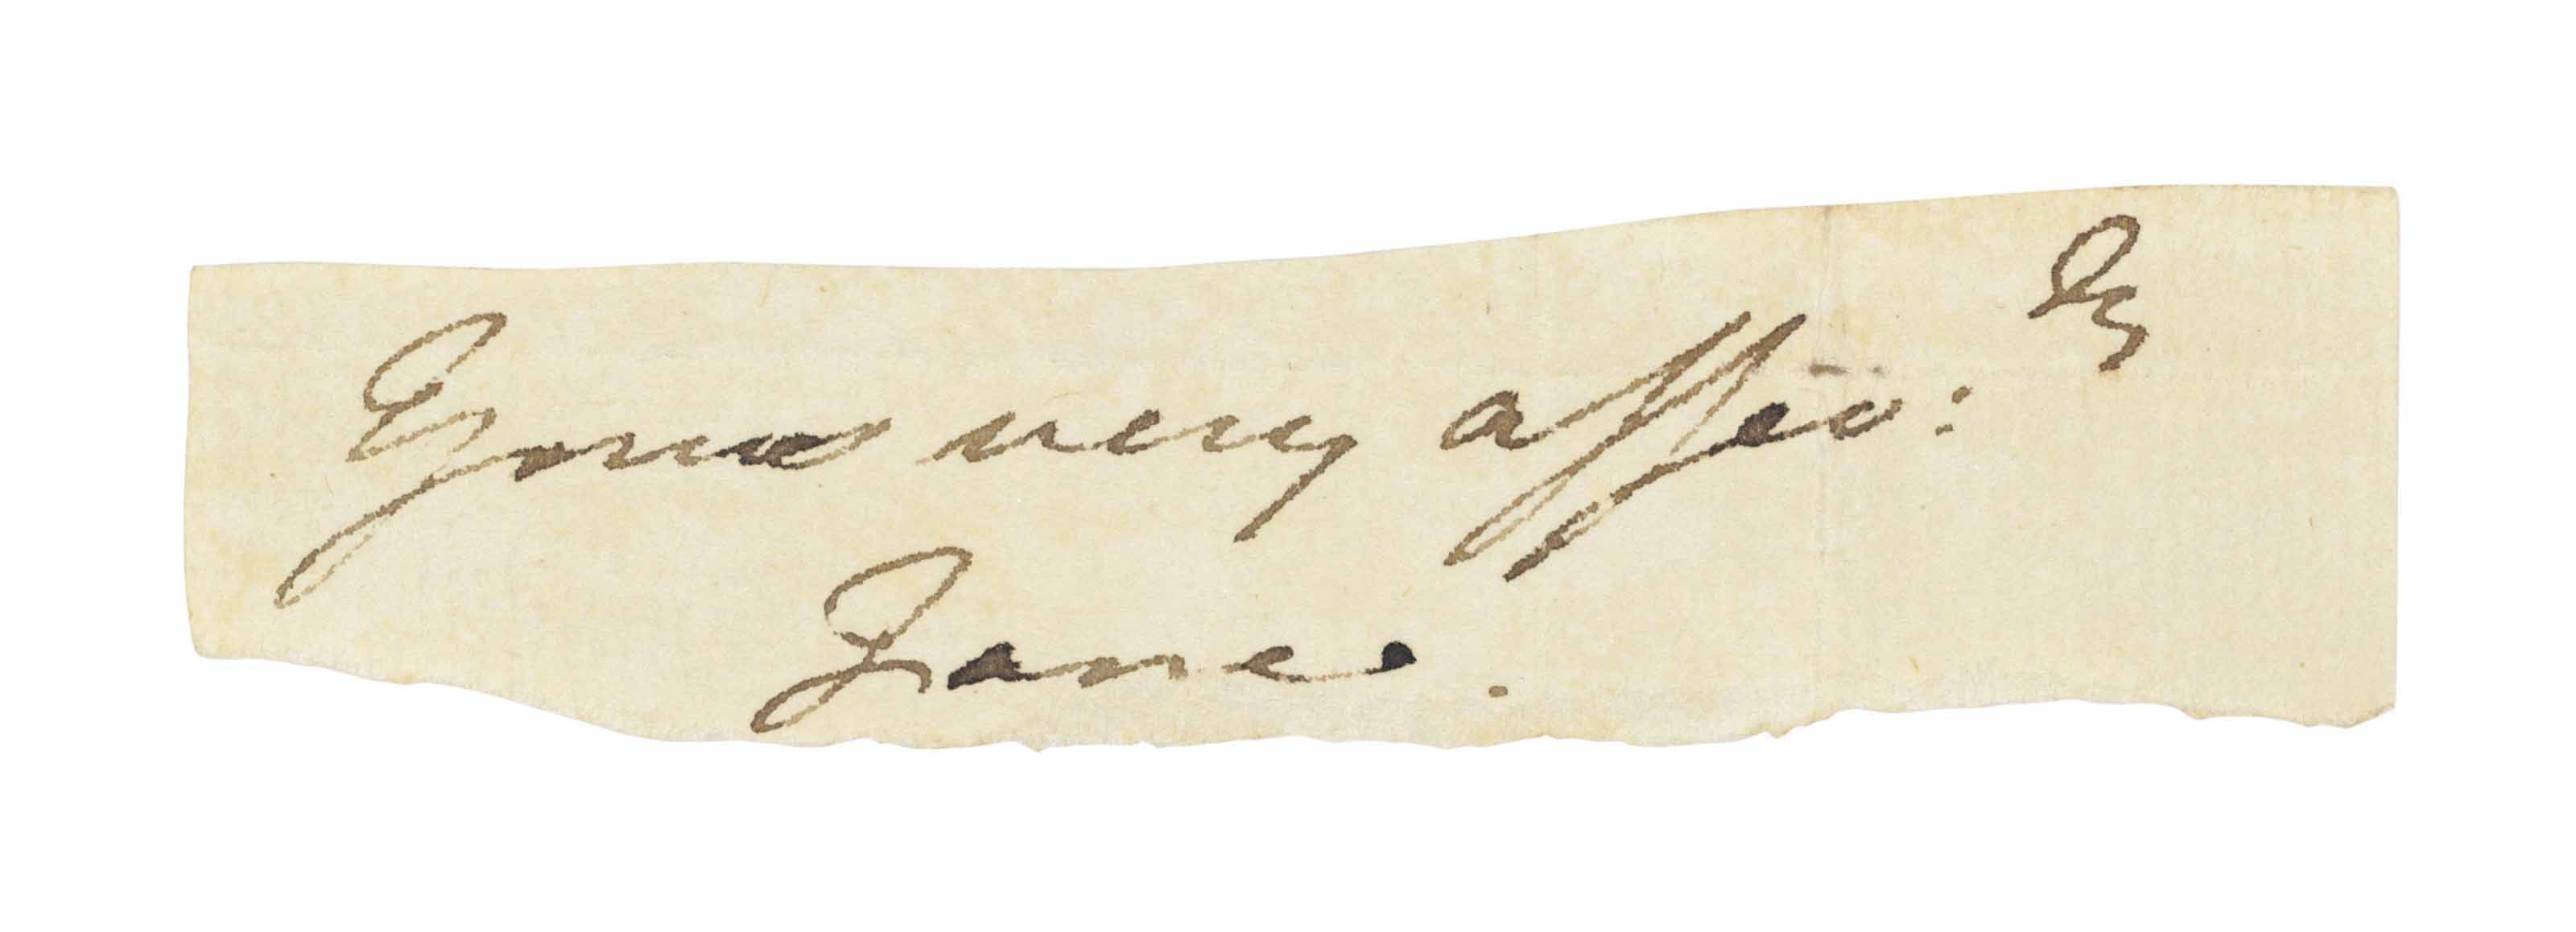 Yours very affec: ly
Jane.